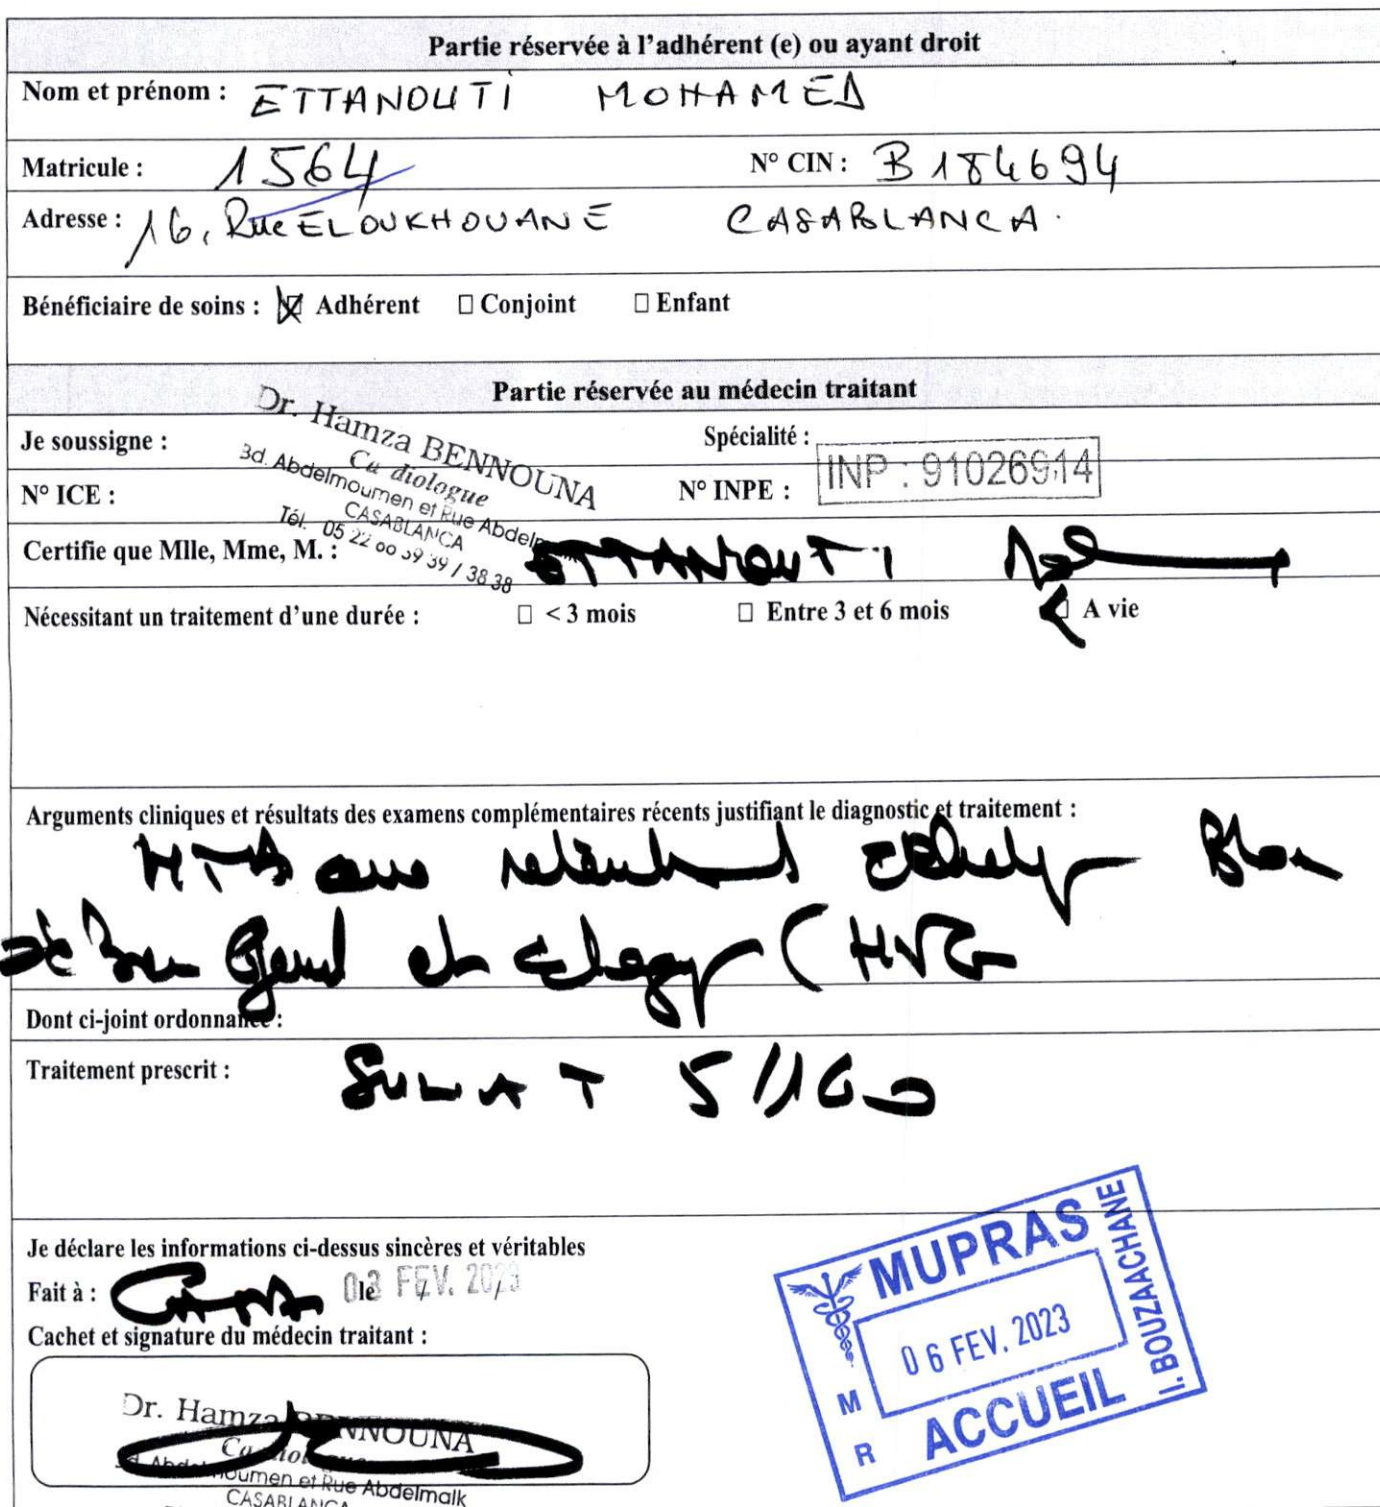 Partie réservée à l'adhérent (e) ou ayant droit
Nom et prénom : ETTANOUTI MOHAMED
Matricule : 1564 N° CIN : B184694
Adresse : 16, Rue ELOUKHOUANE CASABLANCA.
Bénéficiaire de soins : ☒ Adhérent ☐ Conjoint ☐ Enfant
Partie réservée au médecin traitant
Je soussigne : Spécialité :
Dr. Hamza BENNOUNA
Ca diologue
3d. Abdelmoumen et Rue
CASABLANCA
Tél. 05 22 39 / 38 38
INP : 91026914
N° ICE : N° INPE :
Certifie que Mlle, Mme, M. : ETTANOUTI
Nécessitant un traitement d'une durée : ☐ < 3 mois ☐ Entre 3 et 6 mois ☒ A vie
Arguments cliniques et résultats des examens complémentaires récents justifiant le diagnostic et traitement :
HTA avec
et (HVG
Dont ci-joint ordonnance :
Traitement prescrit : 5/160
Je déclare les informations ci-dessus sincères et véritables
Fait à : CASA le 03 FEV. 2023
Cachet et signature du médecin traitant :
Dr. Hamza BENNOUNA
et Rue Abdelmalk
CASABLANCA
MUPRAS
06 FEV. 2023
ACCUEIL
I. BOUZAACHANE
M
R